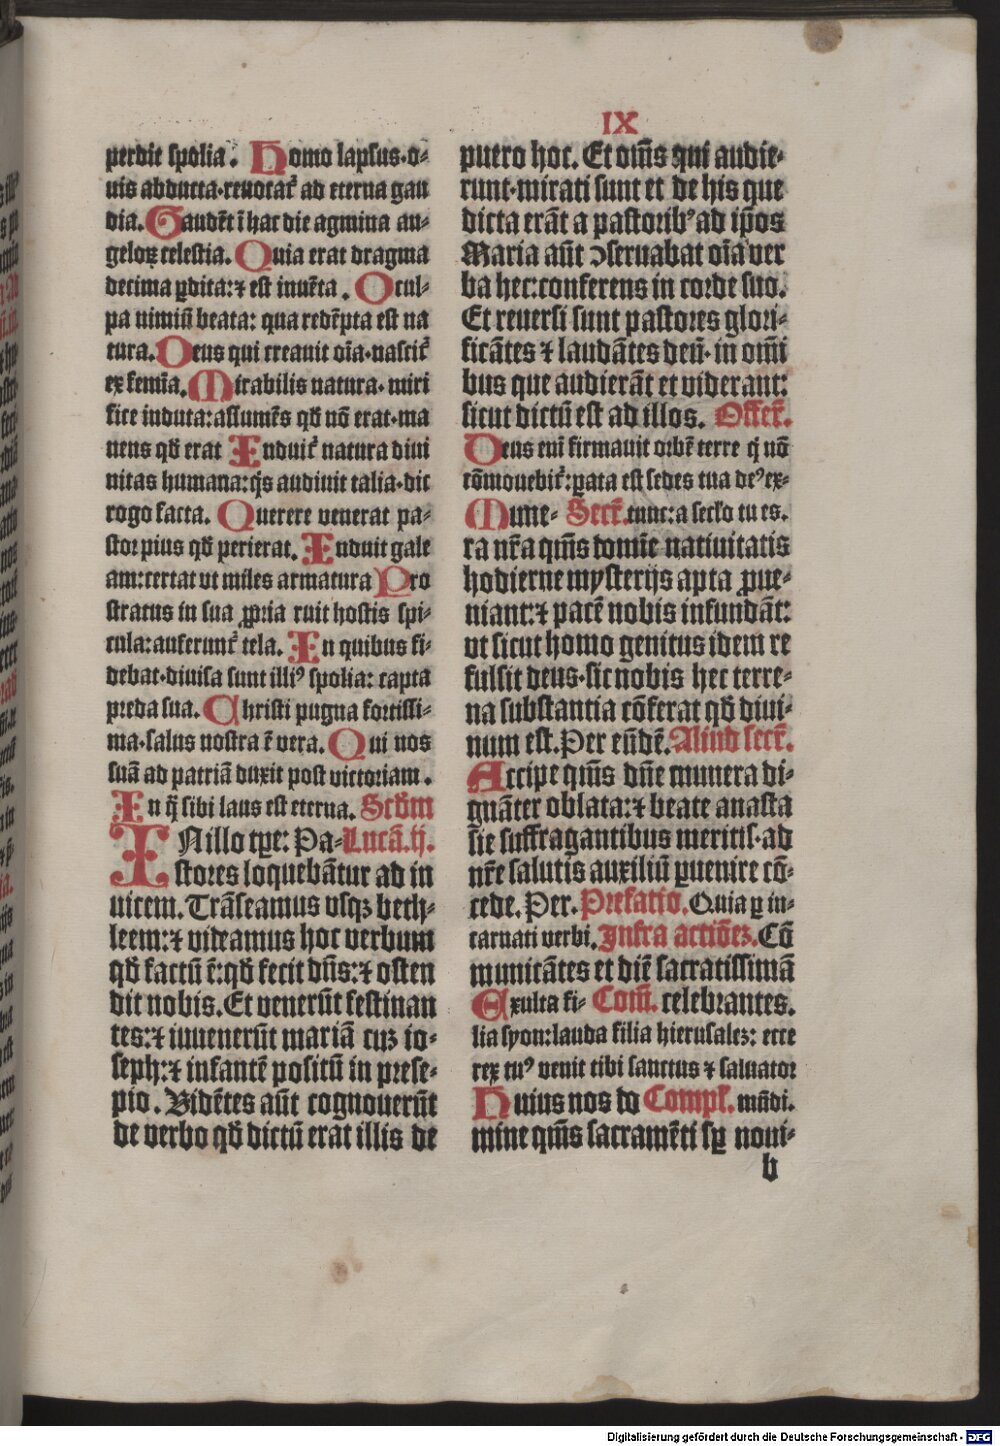 IX
perdit spolia. Homo lapsus·o-
uis abducta·reuocat᷑ ad eterna gau
dia. Gaudẽt ĩ hac die agmina au-
geloꝝ celestia. Quia erat dragma
decima ꝑdita:⁊ est inuẽta. O cul-
pa nimiũ beata: qua redẽpta est na
tura. Deus qui creauit oĩa·nascit᷑
ex femĩa. Mirabilis natura·miri
fice induta:assumẽs qđ nõ erat·ma
nens qđ erat Induit᷑ natura diui
nitas humana:q̃s audiuit talia·dic
rogo facta. Querere venerat pa-
stor pius qđ perierat. Induit gale
am:certat vt miles armatura Pro
stratus in sua ꝓpria ruit hostis spi-
cula:auferunt᷑ tela. In quibus fi-
debat·diuisa sunt illiꝰ spolia: capta
preda sua. Christi pugna fortissi-
ma·salus nostra ẽ vera. Qui nos
suã ad patriã duxit post victoriam.
In q̃ sibi laus est eterna. Scđm
IN illo tꝑe: Pa- Lucã.ij.
stores loquebãtur ad in
uicem. Trãseamus vsqꝫ beth-
leem:⁊ videamus hoc verbum
qđ factũ ẽ:qđ fecit dñs:⁊ osten
dit nobis. Et venerũt festinan
tes:⁊ inuenerũt mariã cuꝫ io-
seph:⁊ infantẽ positũ in prese-
pio. Videtes aũt cognouerũt
de verbo qđ dictũ erat illis de
puero hoc. Et om̃s qui audie-
runt·mirati sunt et de his que
dicta erãt a pastoribꝰ ad ip̃os
Maria aũt ꝯseruabat oĩa ver
ba hec:conferens in corde suo.
Et reuersi sunt pastores glori-
ficãtes ⁊ laudãtes deũ·in om̃i
bus que audierãt et viderant:
sicut dictũ est ad illos. Offer̃.
Deus eni firmauit orbẽ terre q̃ nõ
cõmouebit᷑:ꝑata est sedes tua deꝰ ex-
Mune- Secr̃. tunc:a secło tu es.
ra nr̃a q̃m̃s domie natiuitatis
hodierne mysterijs apta ꝓue-
niant:⁊ pacẽ nobis infundãt:
vt sicut homo genitus idem re
fulsit deus·sic nobis hec terre-
na substantia cõferat qđ diui-
num est. Per eũdẽ. Aliud secr̃.
Accipe q̃m̃s dñe munera di-
gnãter oblata:⁊ beate anasta
sie suffragantibus meritis·ad
nr̃e salutis auxiliũ ꝓuenire cõ-
cede. Per. Prefatio. Quia ꝑ in-
carnati verbi. Infra actiõeꝫ. Cõ
municãtes et diẽ sacratissimã
Exulta fi- Com̃. celebrantes.
lia syon:lauda filia hierusaleꝫ: ecce
rex tuꝰ venit tibi sanctus ⁊ saluator
Huius nos do Compl̃. mũdi.
mine q̃m̃s sacramẽti sꝑ noui-
b
Digitalisierung gefördert durch die Deutsche Forschungsgemeinschaft - DFG